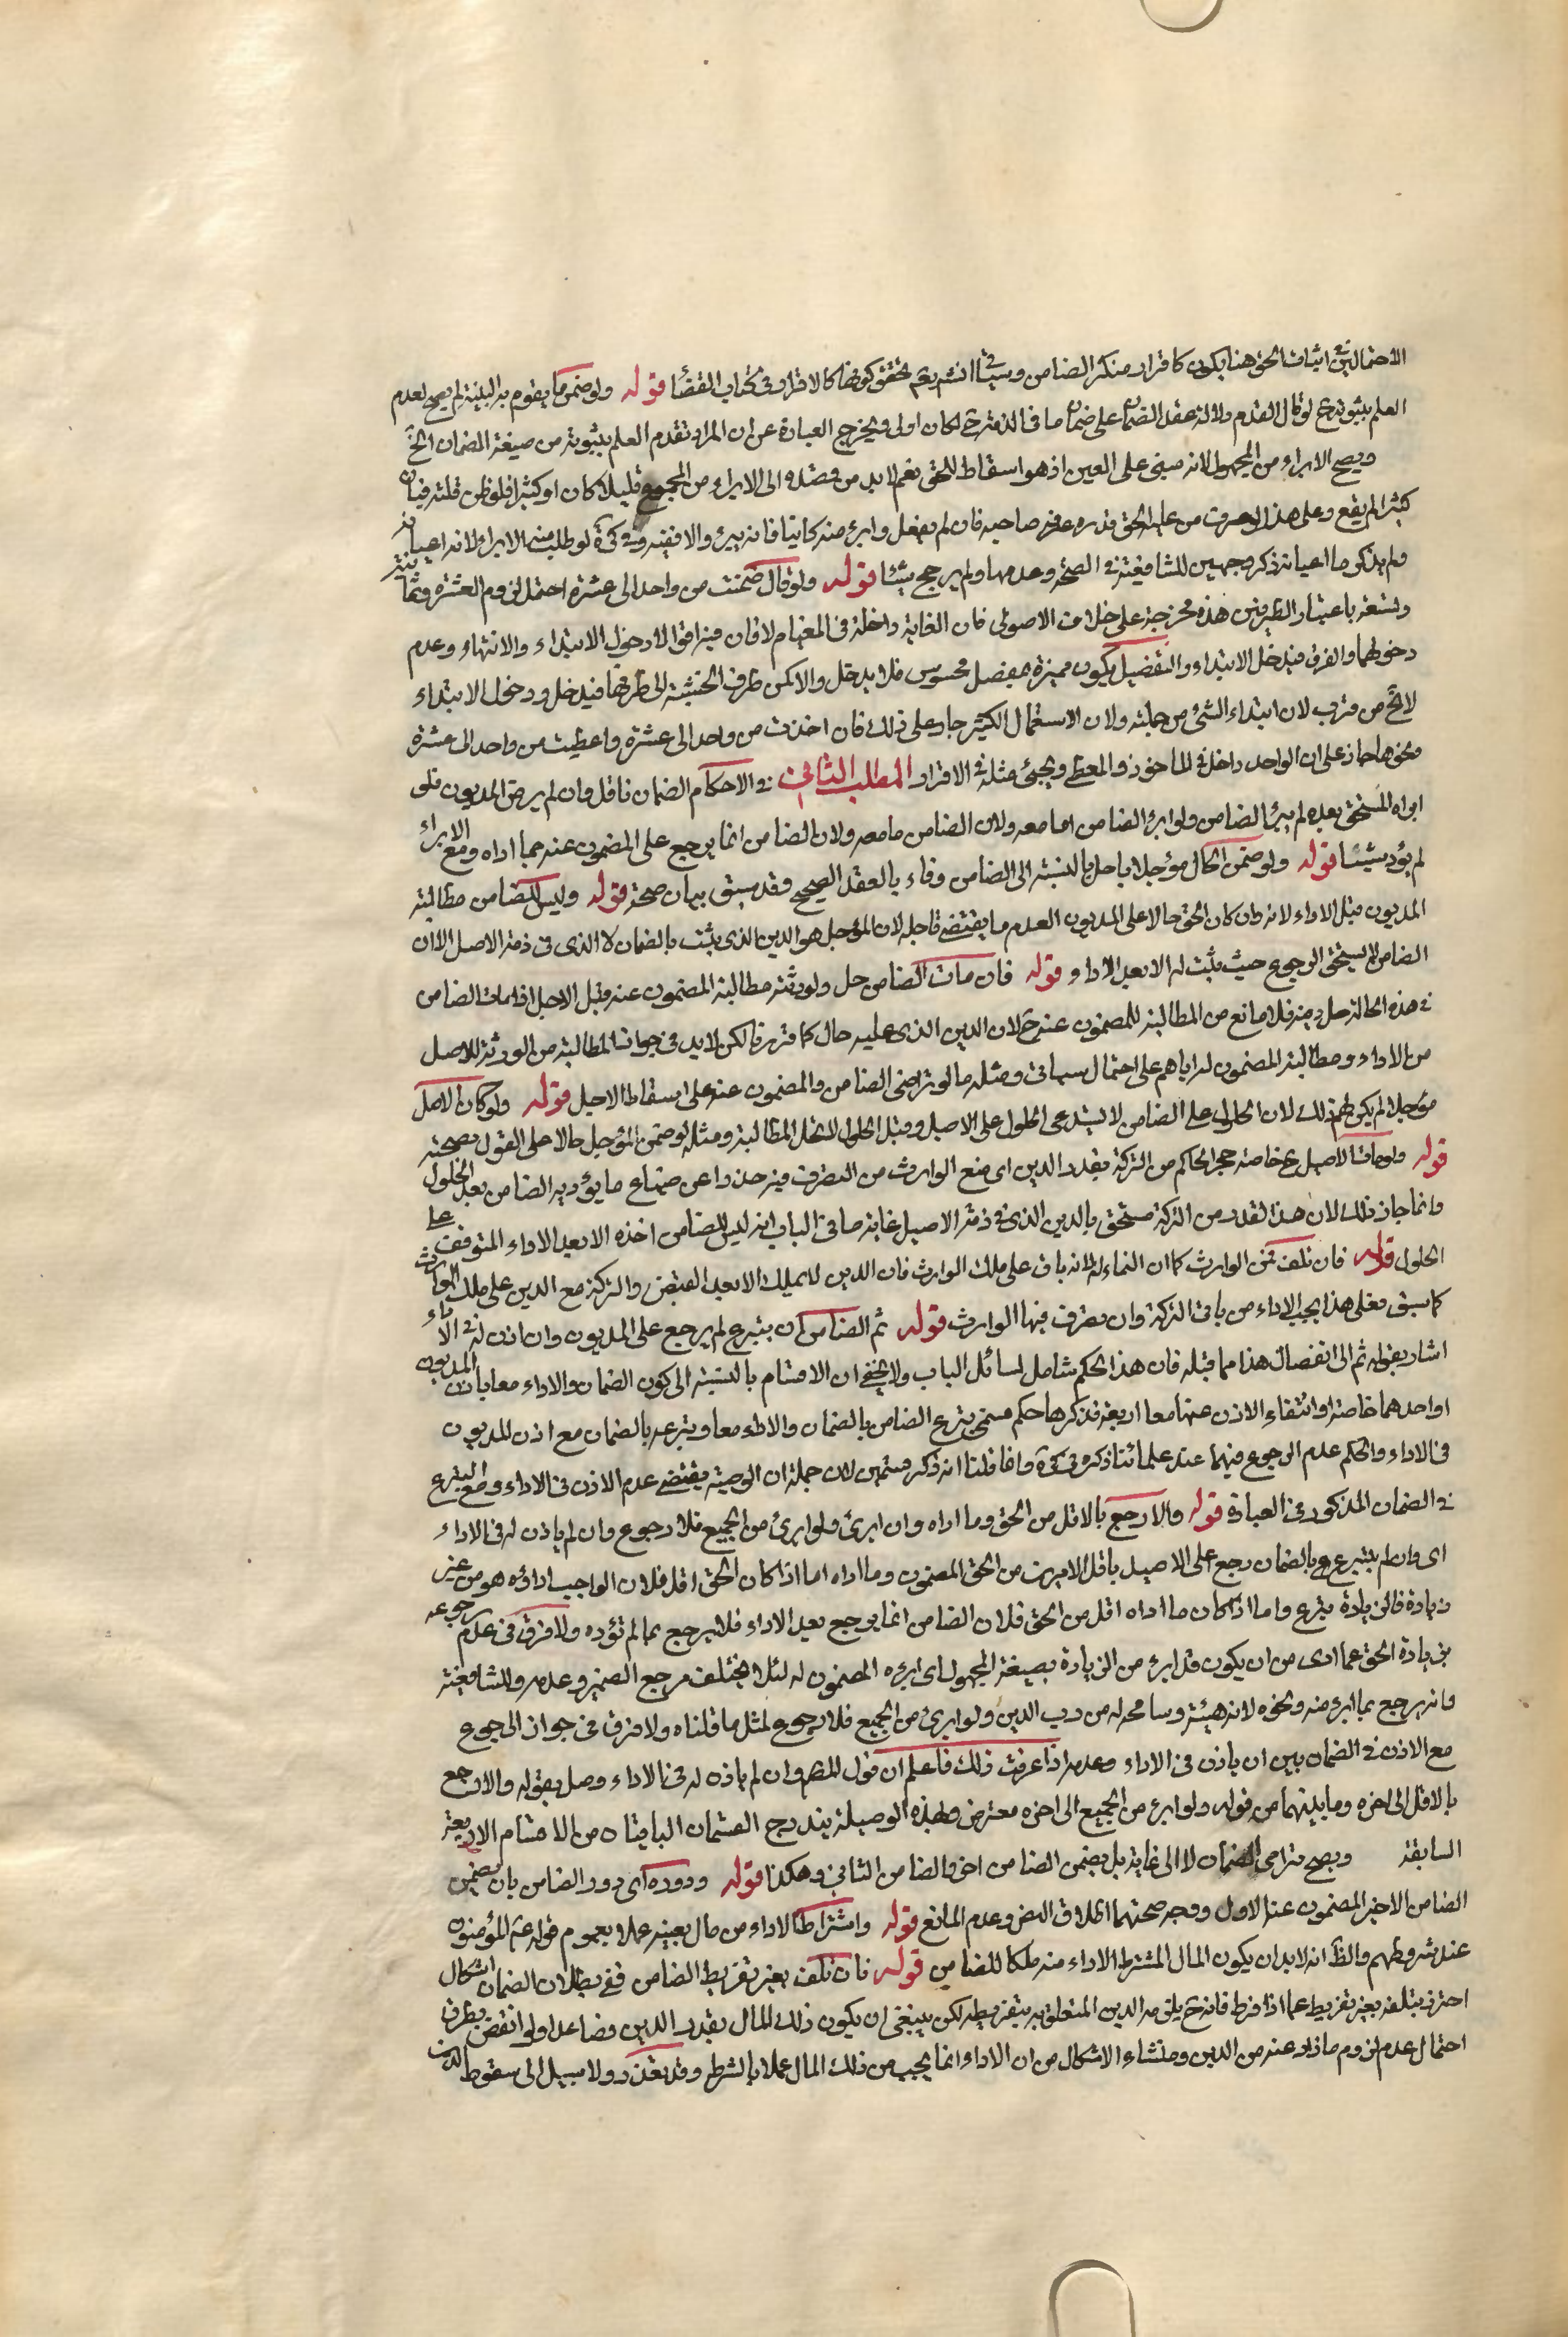 الاحتمالين في اثبات الحق هنا يكون كاقرار منكر الضامن وسياتي انشاء الله تعالى تحقق كونها كالاقرار في كتاب القضاء قوله ولو ضمن ما يقوم به البينة لم يصح لعدم
العلم بثبوته ح لو قال لعدم دلالة عقد الضمان على ضمان ما في الذمة ح لكان اولى ويخرج العبارة عن ان المراد تقدم العلم بثبوته من صيغة الضمان الخ
ويصح الابراء من المجهول لانه مبني على الغبن اذ هو اسقاط للحق نعم لابد من قصده الى الابراء من المجموع قليلا كان او كثيرا فلو ظن قلته فبان
كثيرا لم يقع وعلى هذا لو عرف من عليه الحق قدره عرفه صاحبه فان لم يفعل وابرء منه كانتا فانه يبرئ والا لو طلب منه الابراء لانه
ولم يذكر ما اعيانه ذكر وجهين للشافعية في الصحة وعدمها ولم يرجح شيئا قوله ولو قال ضمنت من واحد الى عشرة احتمل لزوم العشرة وثمانية
وتسعة باعتبار الطرفين هذه مخرجة على خلاف الاصولى فان الغاية داخلة في المغيا ام لا فان فيه اقوالا دخول الابتداء والانتهاء وعدم
دخولهما والفرق فيدخل الابتداء والتفصيل بكون مميزة بمفصل محسوس فلا يدخل والا كمن طرف الخشبة الى طرفها فيدخل ودخول الابتداء
لا يخ من قرب لان ابتداء الشئ من جملته ولان الاستعمال الكثير جار على ذلك فان اخذت من واحد الى عشرة واعطيت من واحد الى عشرة
ونحوهما جار على ان الواحد داخل في الماخوذ والمعطى ويجئ مثله في الاقرار المطلب الثاني في الاحكام الضمان ناقل وان لم يرض المديون فلو
ابراه المستحق بعده لم يبرأ الضامن ولو ابرء الضامن ولان الضامن ولان الضامن انما يرجع على المضمون عنه بما اداه ومع الابراء
لم يؤد شيئا قوله ولو ضمن الحال مؤجلا باجل بالنسبة الى الضامن وفاء بالعقد الصحيح وقد سبق بيان صحته قوله وليس للضامن مطالبة
المديون قبل الاداء لانه وان كان الحق حالا على المديون لعدم ما يقتضي تاجيله لان المؤجل هو الدين الذي يثبت بالضمان لا الذي في ذمة الاصل الا ان
الضامن لا يستحق الرجوع حيث يثبت له الا بعد الاداء قوله فان مات الضامن حل ولورثته مطالبة المضمون عنه قبل الاجل اذا مات الضامن
في هذه الحالة حل دينه فلا مانع من المطالبة للمضمون عنه ح لان الدين الذي عليه حال كما قررنا لكن لابد في جواز المطالبة من الورثة للاصل
من الاداء ومطالبة المضمون له اياهم على احتمال سياتي ومثله ما لو تراضى الضامن والمضمون عنه على اسقاط الاجل قوله ولو كان الاصل
مؤجلا لم يكن لهم ذلك لان الحلول على الضامن لا يستدعى الحلول على الاصيل وقبل الحلول لا يستحق المطالبة ومثله لو ضمن المؤجل حالا على القول بصحته
قوله ولو مات الاصيل ح خاصة حجر الحاكم من التركة بقدر الدين اى منع الوارث من التصرف فيه حذرا عن ضياع ما يؤديه الضامن بعد الحلول
وانما جاز ذلك لان هذا القدر من التركة مستحق بالدين الذي في ذمة الاصيل غاية ما في الباب انه ليس للضامن اخذه الا بعد الاداء المتوقف على
الحلول قوله فان تلف فمن الوارث كما ان النماء له لانه باق على ملك الوارث فان الدين لا يملك الا بعد القبض والتركة مع الدين على ملك الوارث
كما سبق فعلى هذا يجب الاداء من باقي التركة وان تصرف فيها الوارث قوله ثم الضامن ان بتبرع لم يرجع على المديون وان اذن له في الاداء
اشار بقوله ثم الى انفصال هذا مما قبله فان هذا الحكم شامل لمسائل الباب ولا يخفى ان الاقسام بالنسبة الى كون الضمان والاداء معا باذن المديون
او احدهما خاصة او انتفاء الاذن عنهما معا اربعة فذكر ها حكم قسمي تبرع الضامن بالضمان والاداء معا وتبرعه بالضمان مع اذن المديون
في الاداء والحكم عدم الرجوع فيهما عند علمائنا ذكره في كرة وانما قلنا انه ذكر قسمين لان جملة ان الوصية يقتضي عدم الاذن في الاداء ومع التبرع
في الضمان المذكور في العبارة قوله والا رجع بالاقل من الحق وما اداه وان ابرئ ولو ابرئ من الجميع فلا رجوع وان لم ياذن له في الاداء
اى وان لم يتبرع هو بالضمان رجع على الاصيل باقل الامرين من الحق المضمون وما اداه اما اذا كان الحق اقل فلان الواجب اداؤه هو من غير
زيادة فالزيادة تبرع واما اذا كان ما اداه اقل من الحق فلان الضامن انما يرجع بعد الاداء فلا يرجع بما لم يؤده ولا فرق في عدم رجوعه
بزيادة الحق عما ادى من ان يكون قد ابرء من الزيادة بصيغة المجهول اى ابرءه المضمون له لئلا يختلف مرجع الضمير وعدمه وللشافعية
وانه يرجع بما ابرء منه ونحوه لانه هبة وسامحه له من رب الدين ولو ابرئ من الجميع فلا رجوع لمثل ما قلناه ولا فرق في جواز الرجوع
مع الاذن في الضمان بين ان ياذن في الاداء وعدمه اذا عرفت ذلك فاعلم ان قول المصنف وان لم ياذن له في الاداء وصل بقوله والا رجع
بالاقل الى اخره وما بينهما من قوله ولو ابرء من الجميع الى اخره معترض وبهذه الوصيلة يندرج القسمان الباقيان من الاقسام الاربعة
السابقة ويصح ترامى الضمان لا الى غاية بل يضمن الضامن اخر والضامن الثاني وهكذا قوله ودوره اى دور الضامن بان يضمن
الضامن الاخير المضمون عنه الاول ووجه صحتهما اطلاق النص وعدم المانع قوله واشتراط الاداء من مال بعينه عملا بعموم قوله ع المؤمنون
عند شروطهم والظ انه لابد ان يكون المال المشترط الاداء منه ملكا للضامن قوله فان تلف بغير تفريط الضامن ففي بطلان الضمان اشكال
احترز بتلفه بغير تفريط عما اذا فرط فانه ح يلزمه الدين المتعلق به بتفريطه لكن ينبغي ان يكون ذلك المال بقدر الدين فصاعدا ولو انقص يطرق
احتمال عدم لزوم ما زاد عنه من الدين ومنشاء الاشكال من ان الاداء انما يجب من ذلك المال عملا بالشرط وقد تعذر ولا سبيل الى سقوط الدين